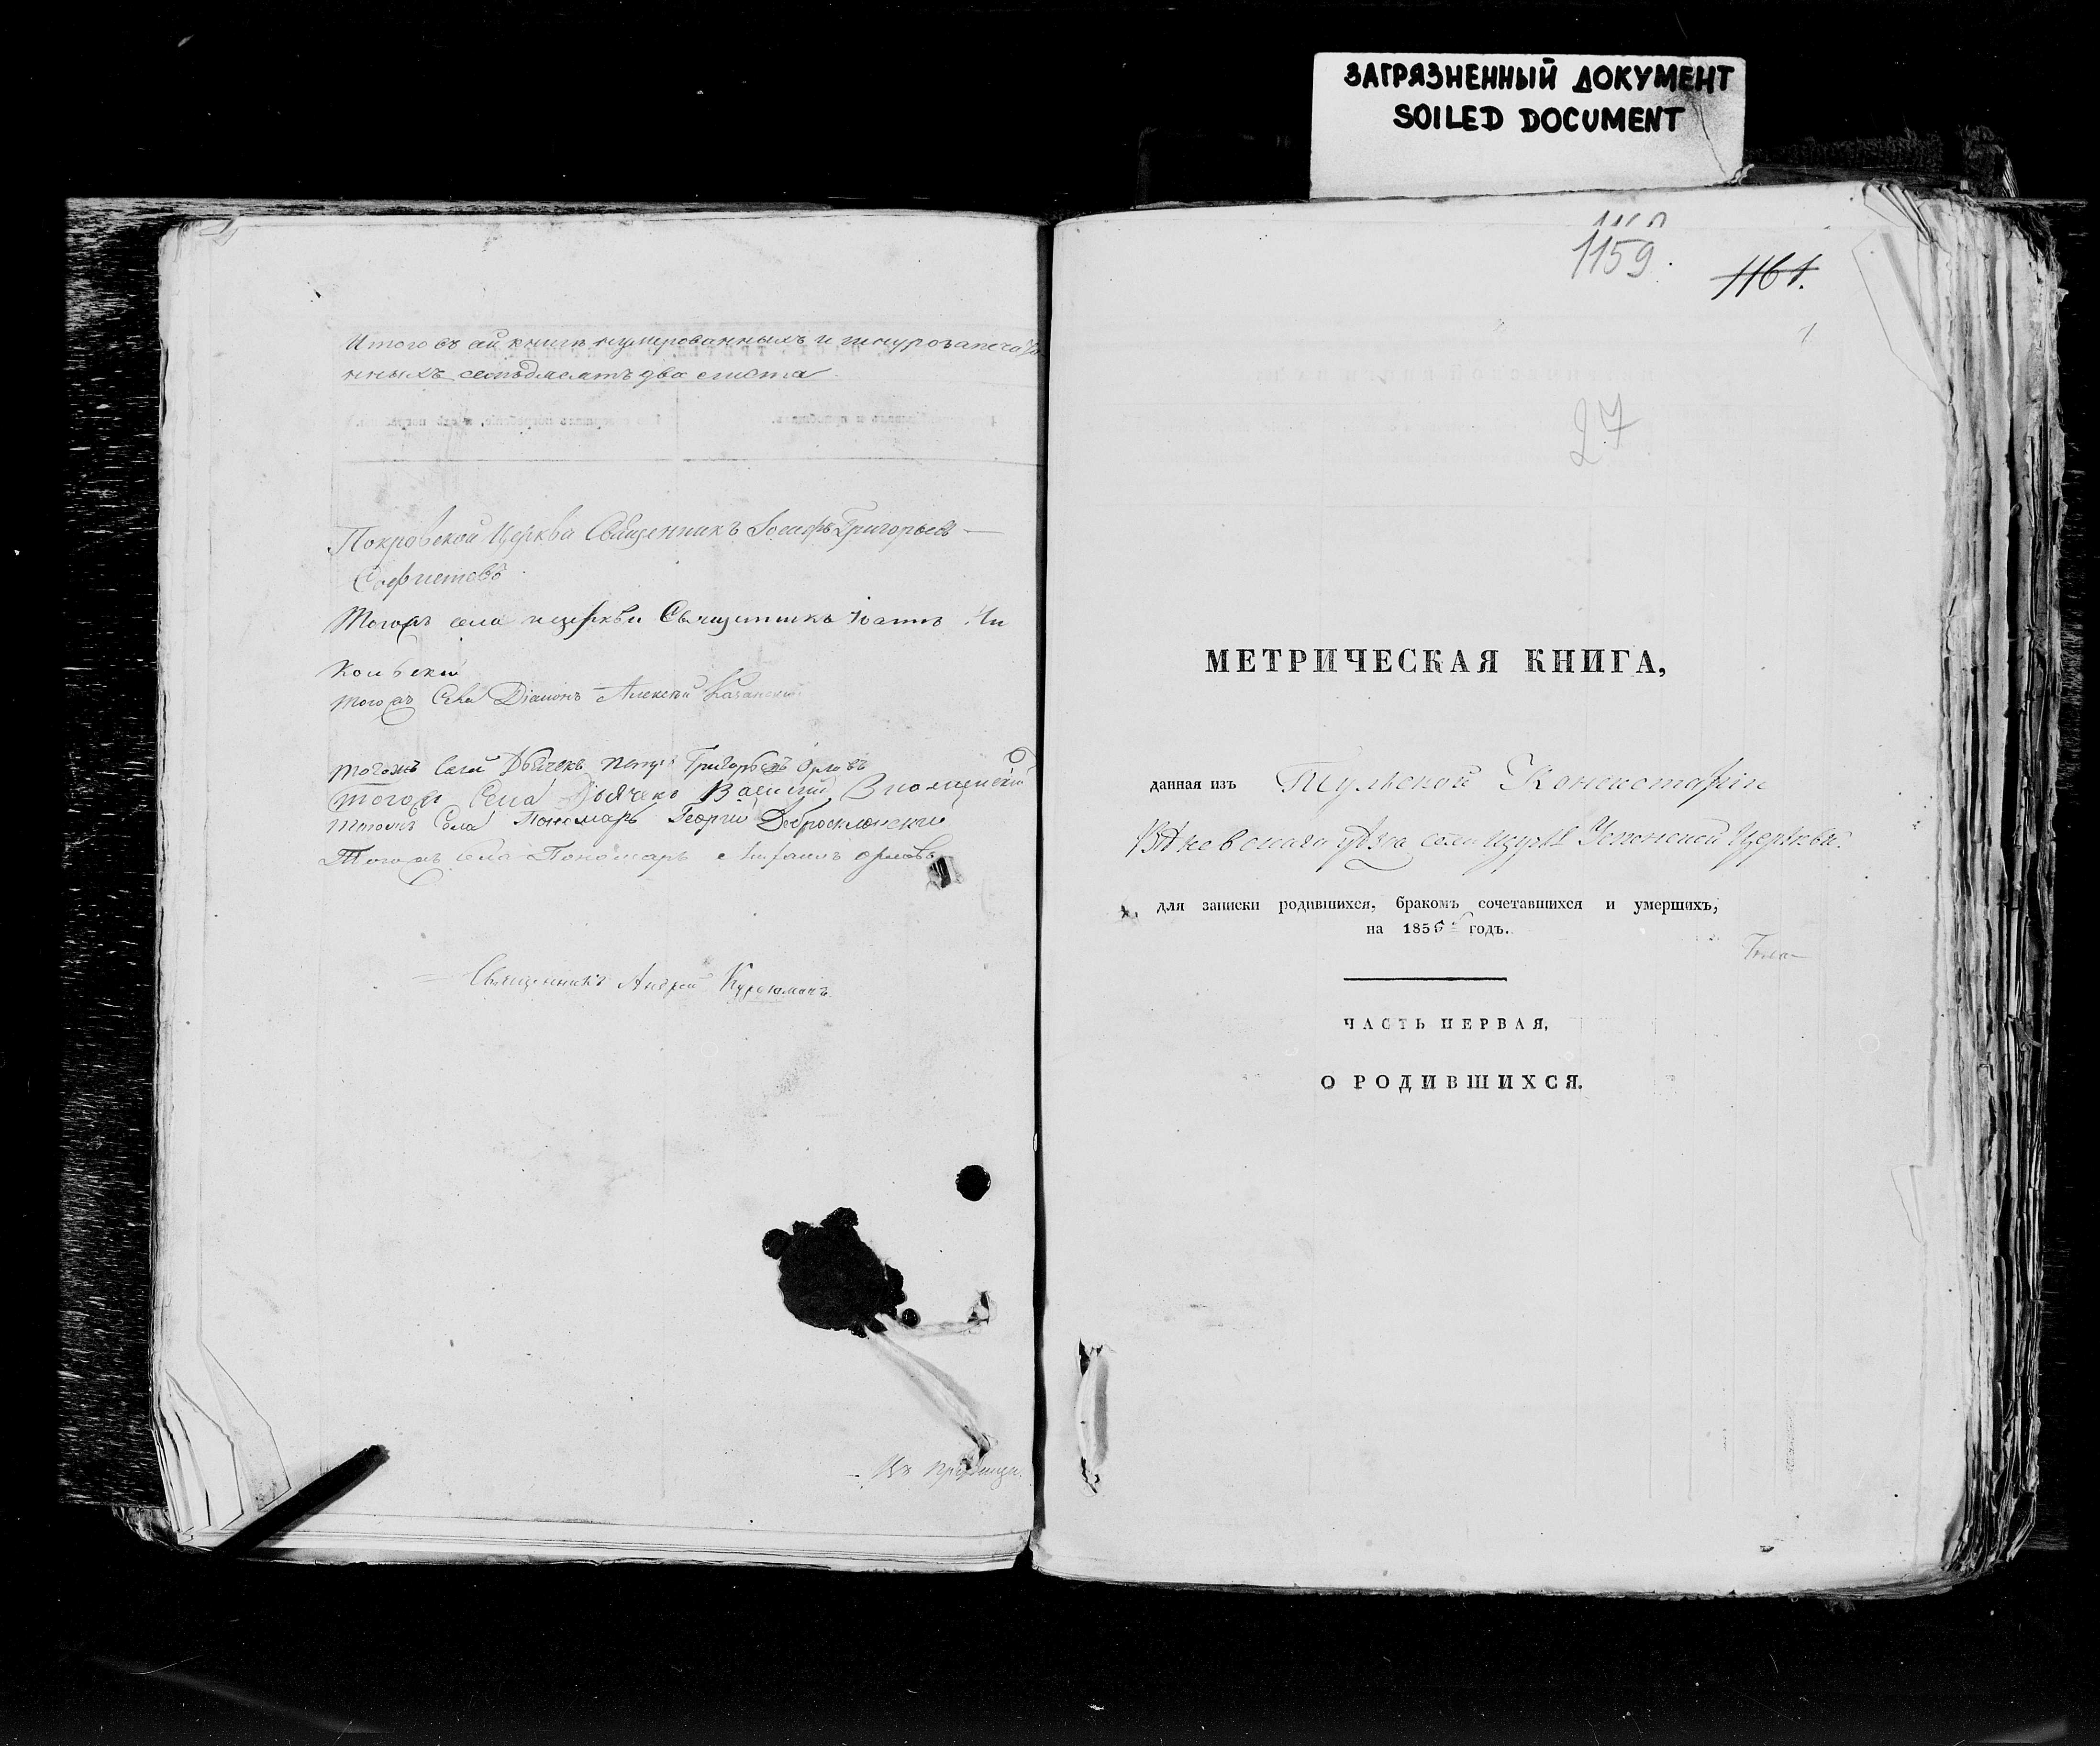 ЗАГРЯЗНЕННЫЙ ДОКУМЕНТ
SOILED DOCUMENT
Итого въ сей книге нумерованныхъ и шнурозапеча
нныхъ семьдесятъ два листа
Покровской Церкви Священникъ Іосифъ Григорьевъ
Софистовъ
Тогожъ села церкви Священникъ Іоаннъ Ни
кольскій
тогожъ Села Діаконъ Алексѣй Казанскій
тогожъ Села Дьячекъ Петръ Григорьевъ Орловъ
тогожъ Села Дьячекъ Василій
тогожъ Села Пономарь Георгій Добросклонскій
Тогожъ села Пономарь Михаилъ Орловъ
Священникъ Андрей
1159.
1161.
1
27
МЕТРИЧЕСКАЯ КНИГА,
данная изъ Тульской Консисторіи
уѣзда села Успенской Церкви
для записки родившихся, бракомъ сочетавшихся и умершихъ,
на 1856 годъ.
ЧАСТЬ ПЕРВАЯ,
О РОДИВШИХСЯ.